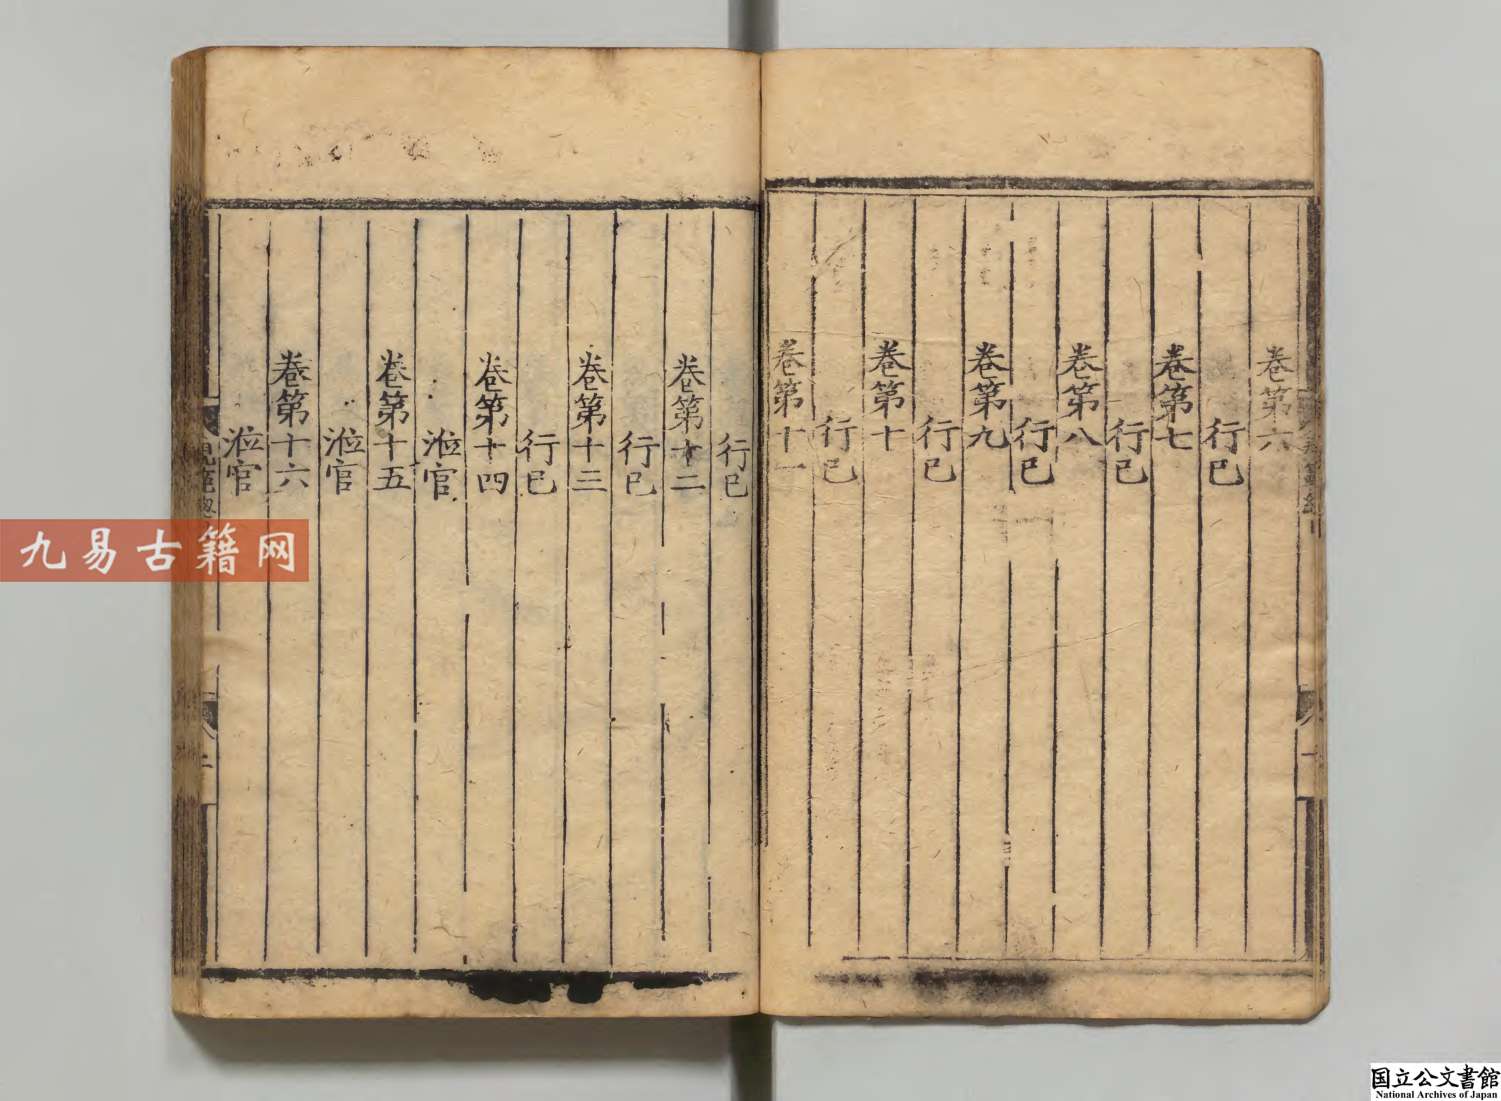 卷第六
行已
卷第七
行已
卷第八
行已
卷第九
行已
卷第十
行已
卷第十一
行已
卷第十二
行已
卷第十三
行已
卷第十四
涖官
卷第十五
涖官
卷第十六
涖官
九易古籍网
国立公文書館
National Archives of Japan